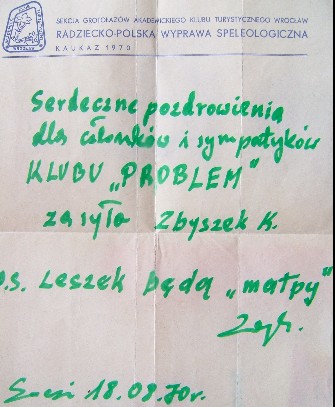 SEKCJA GROTOŁAZÓW AKADEMICKIEGO KLUBU TURYSTYCZNEGO WROCŁAW
RADZIECKO-POLSKA WYPRAWA SPELEOLOGICZNA
KAUKAZ 1970
Serdeczne pozdrowienia
dla członków i sympatyków
KLUBU „PROBLEM"
zasyła Zbyszek K.
P.S. Leszek będą „małpy"
18.08.70r.